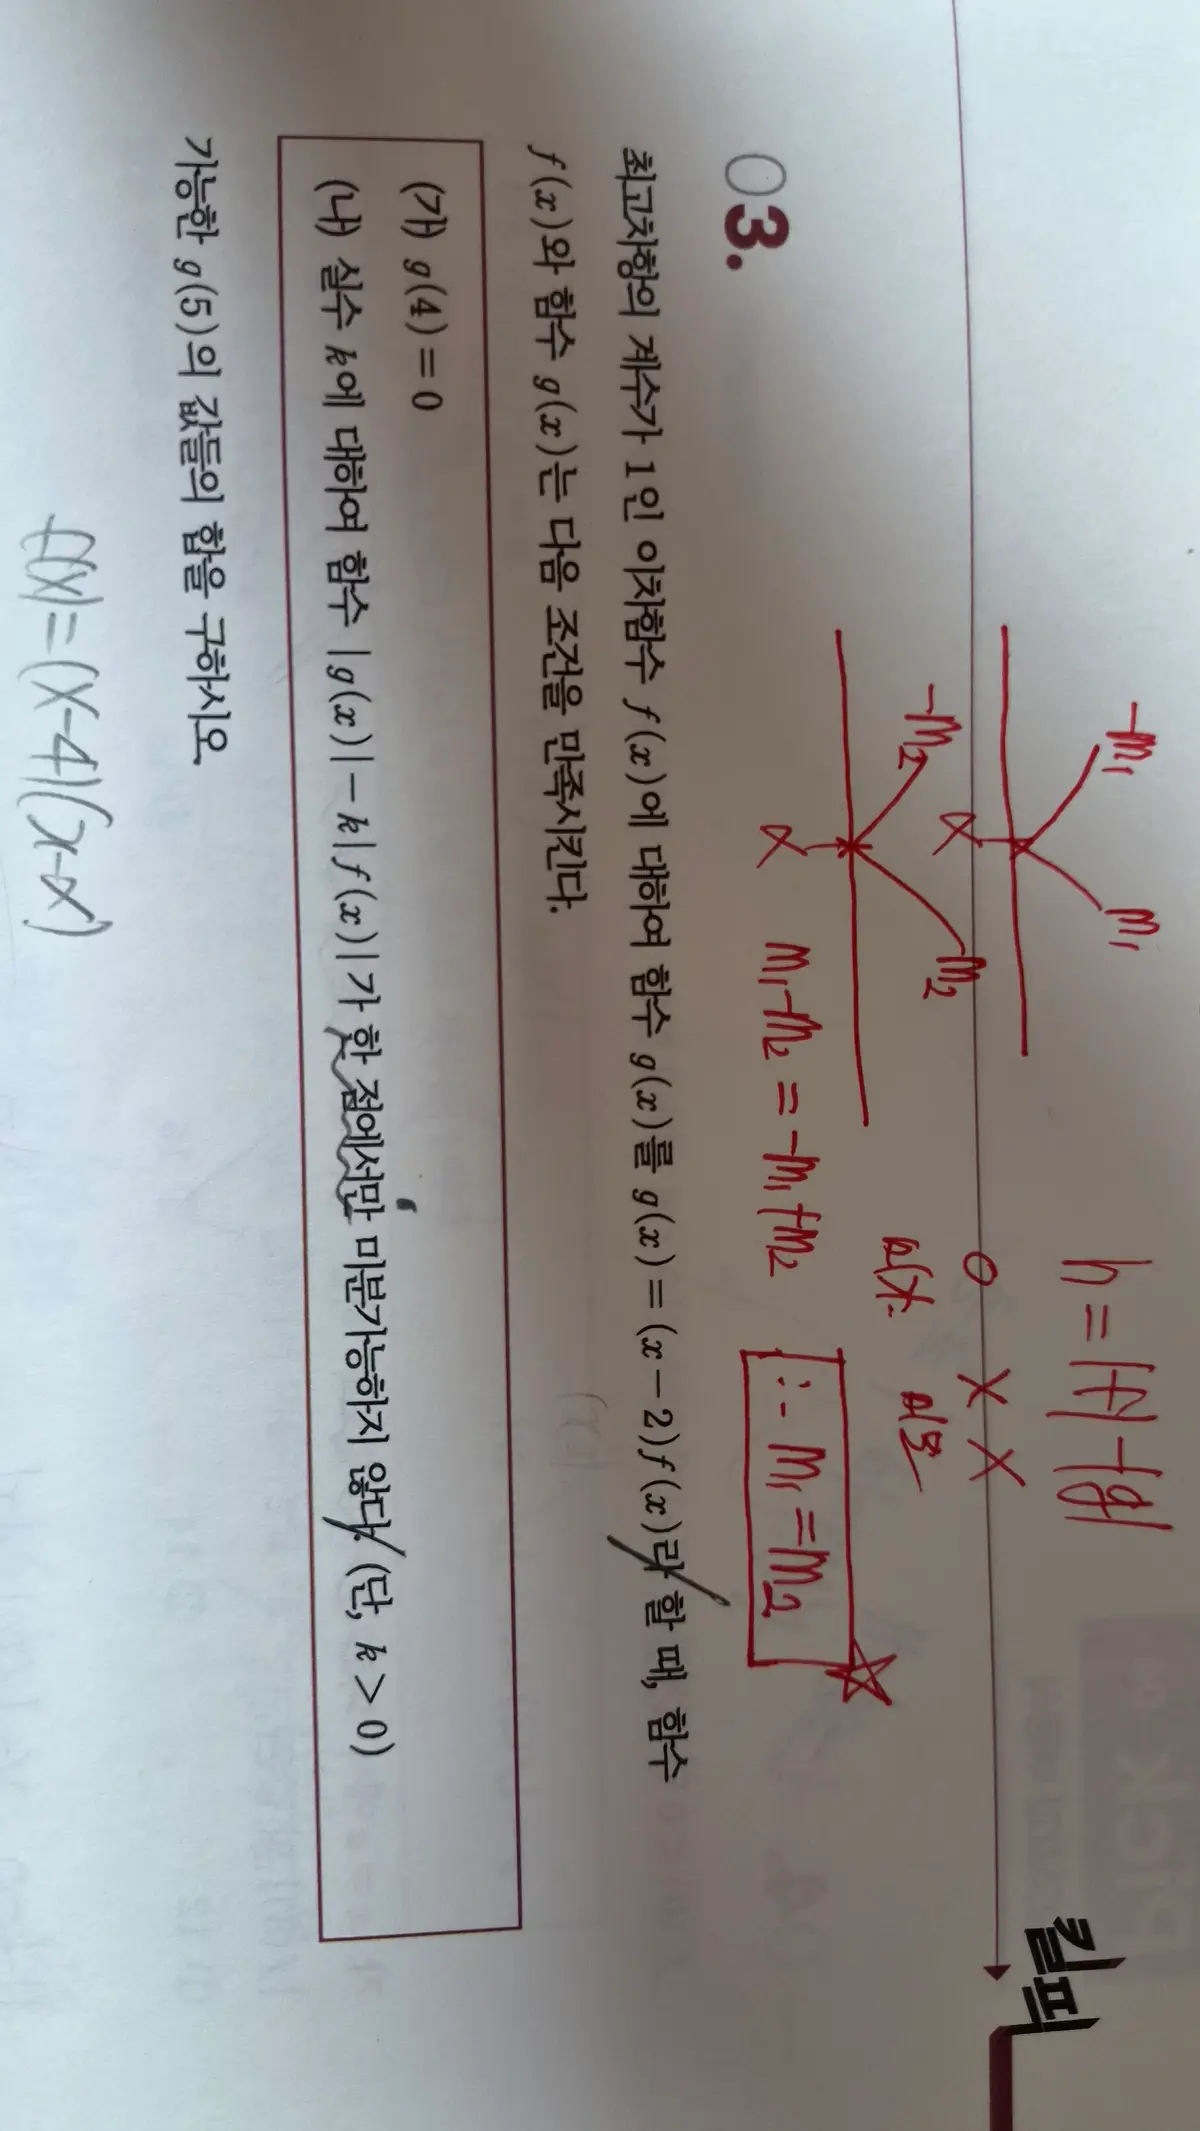 킬픽
h = |f| - |g|
-m₁ m₁
α
○ × ×
미가 미분
-m₂ m₂
α
m₁-m₂ = -m₁+m₂ ∴ m₁=m₂
03.
최고차항의 계수가 1인 이차함수 f(x)에 대하여 함수 g(x)를 g(x)=(x-2)f(x)라 할 때, 함수
f(x)와 함수 g(x)는 다음 조건을 만족시킨다.
(가) g(4)=0
(나) 실수 k에 대하여 함수 |g(x)|-k|f(x)|가 한 점에서만 미분가능하지 않다. (단, k>0)
가능한 g(5)의 값들의 합을 구하시오.
f(x)=(x-4)(x-α)